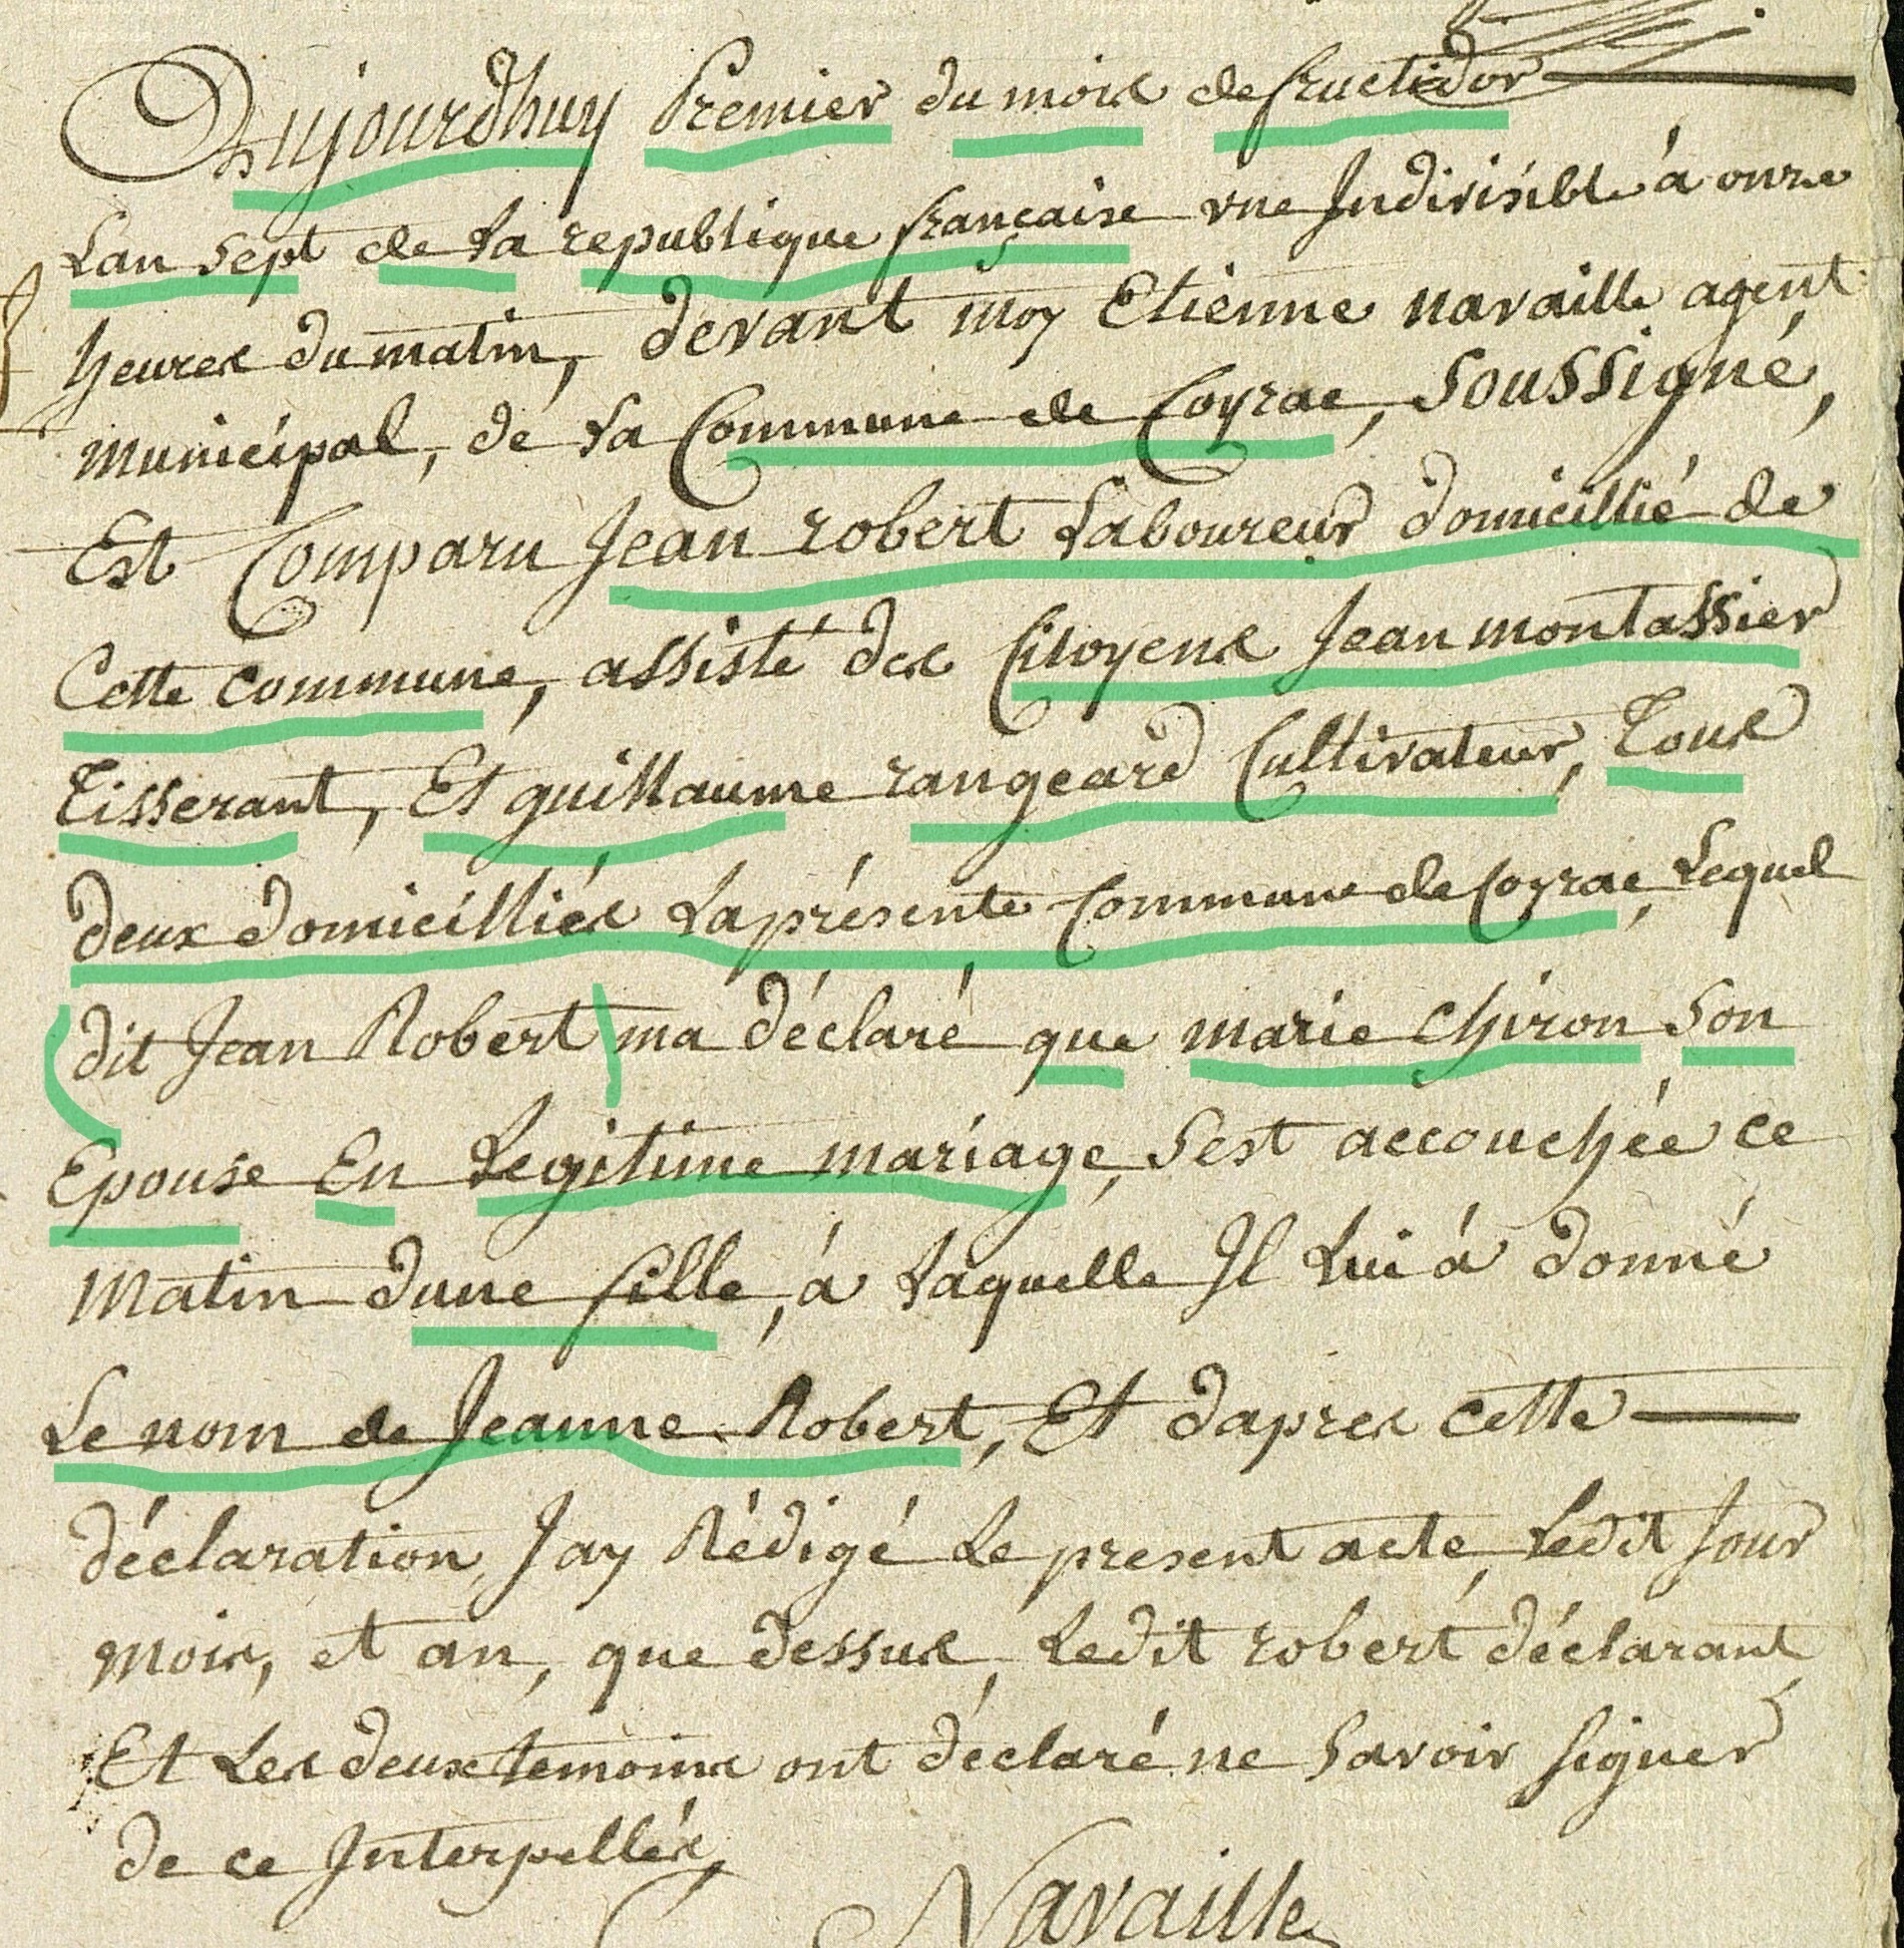 Aujourdhuy Premier du mois de fructidor
Lan sept de la republique française une Indivisible à onze
heures du matin, devant moy Etienne navaille agent
municipal, de la Commune de Coyrac, soussigné,
Est Comparu Jean robert Laboureur domicillié de
Cette commune, assisté des Citoyens Jean montassier
Tisserant, Et guillaume rangeard Cultivateur, Tous
deux domicilliés Laprésente Commune de Coyrac, Lequel
dit Jean Robert ma déclaré que marie chiron son
Epouse En Legitime mariage, sest accouchée ce
matin dune fille, à Laquelle Il Lui à donné
Le nom de Jeanne Robert, Et dapres cette
déclaration, Jay Rédigé Le present acte, Ledit Jour
mois, et an, que dessus, Ledit robert déclarant,
Et Les deux temoins ont déclaré ne savoir signer
de ce Interpellés,
Navaille